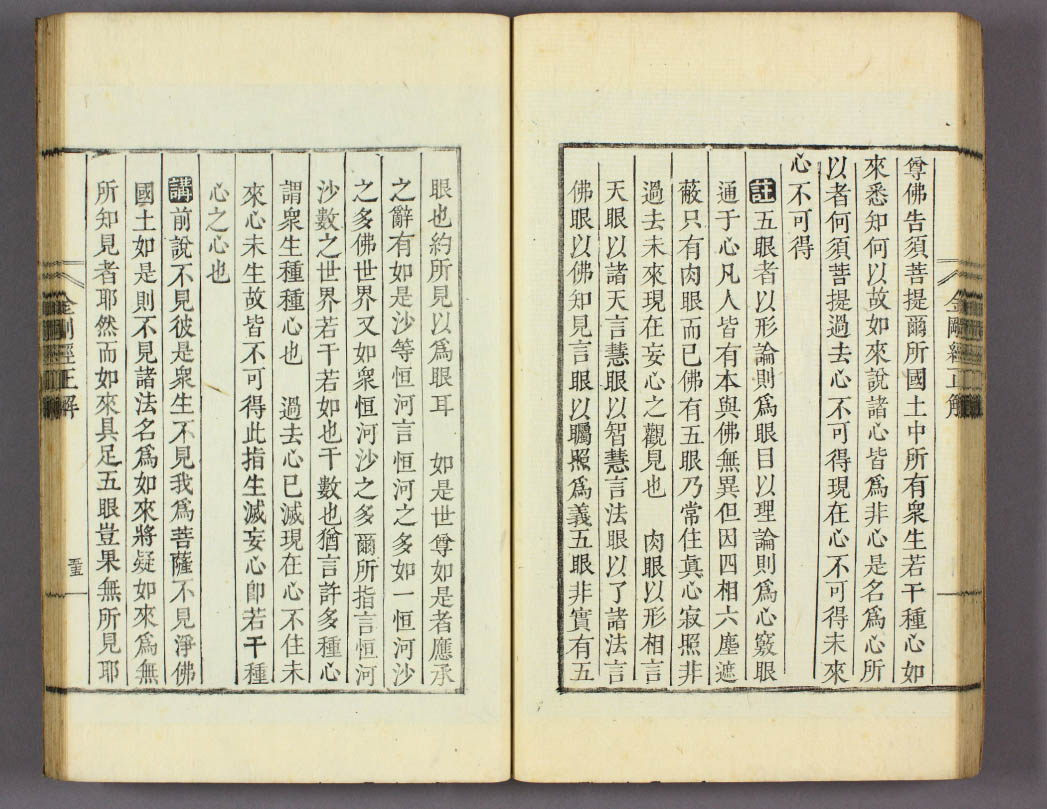 尊佛告須菩提爾所國土中所有衆生若干種心如
來悉知何以故如來說諸心皆爲非心是名爲心所
以者何須菩提過去心不可得現在心不可得未來
心不可得
註五眼者以形論則爲眼目以理論則爲心竅眼
通于心凡人皆有本與佛無異但因四相六塵遮
蔽只有肉眼而已佛有五眼乃常住真心寂照非
過去未來現在妄心之觀見也 肉眼以形相言
天眼以諸天言慧眼以智慧言法眼以了諸法言
佛眼以佛知見言眼以矚照爲義五眼非實有五
金剛經正解
眼也約所見以爲眼耳 如是世尊如是者應承
之辭有如是沙等恒河言恒河之多如一恒河沙
之多佛世界又如衆恒河沙之多爾所指言恒河
沙數之世界若干若如也干數也猶言許多種心
謂衆生種種心也 過去心已滅現在心不住未
來心未生故皆不可得此指生滅妄心卽若干種
心之心也
講前說不見彼是衆生不見我爲菩薩不見淨佛
國土如是則不見諸法名爲如來將疑如來爲無
所知見者耶然而如來具足五眼豈果無所見耶
金剛經正解